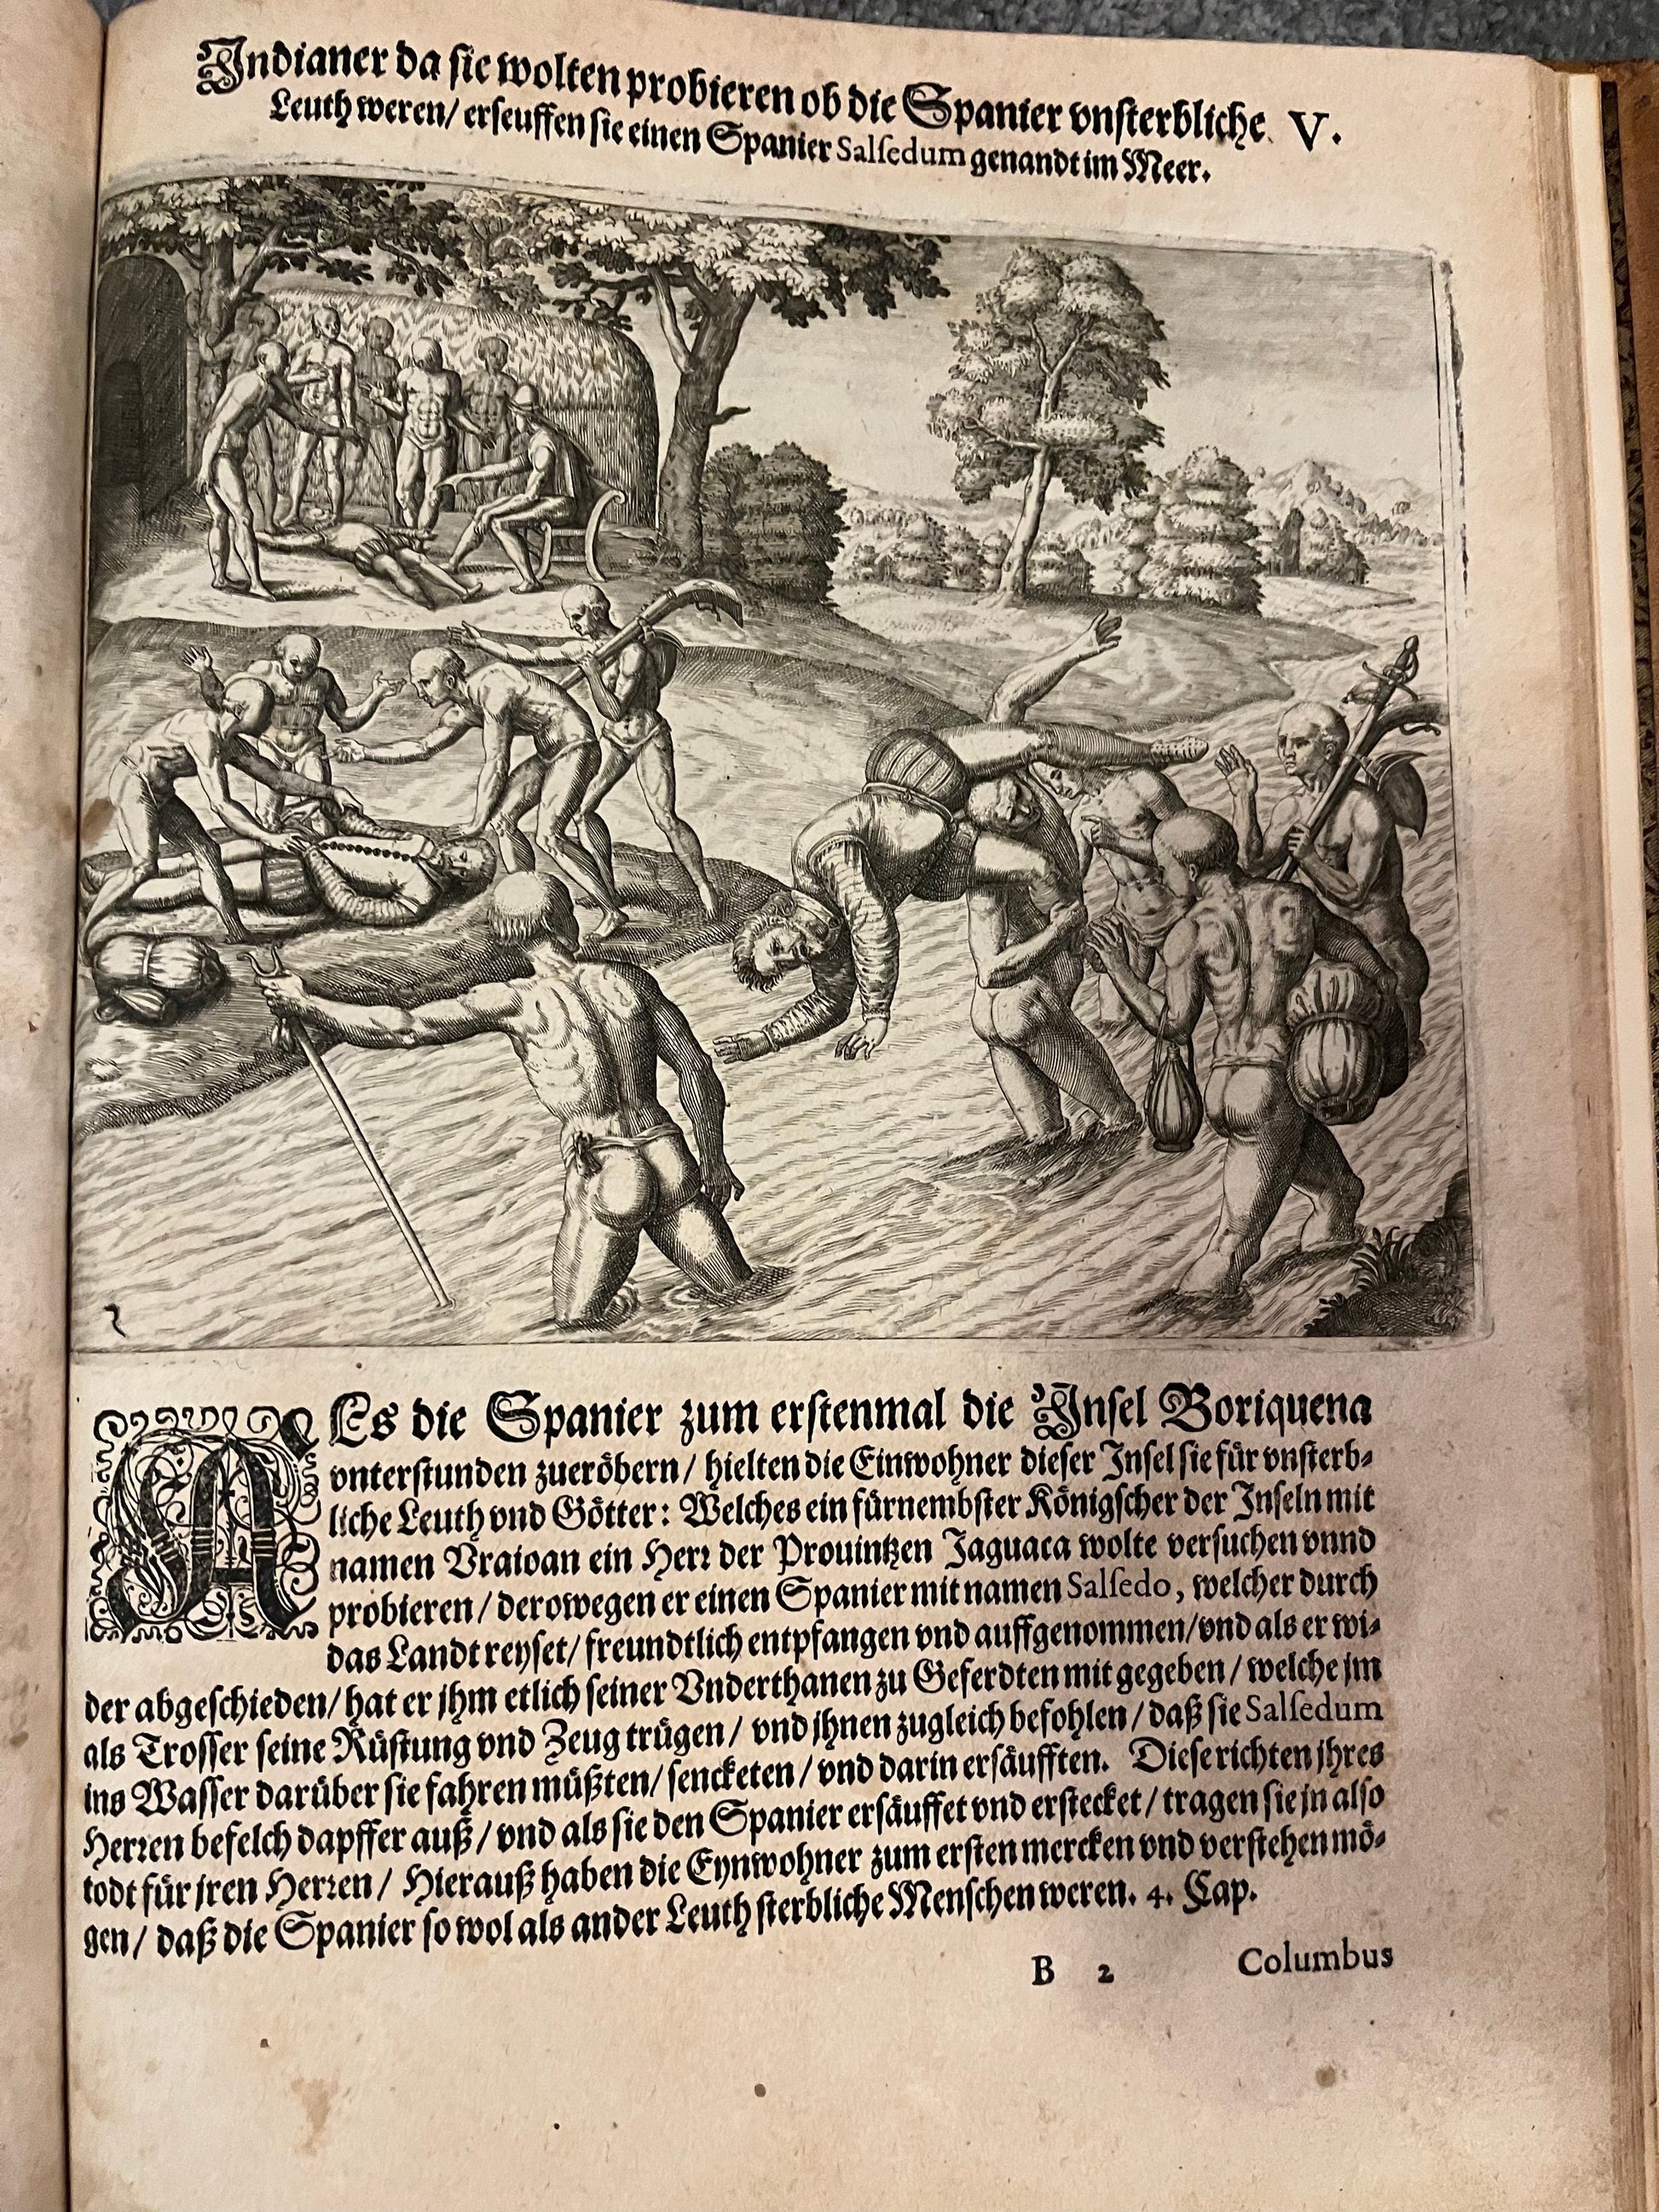 Indianer da sie wolten probieren ob die Spanier vnsterbliche V.
Leuth weren/ erseuffen sie einen Spanier Salsedum genandt im Meer.
ALs die Spanier zum erstenmal die Insel Boriquena
vnterstunden zueröbern/ hielten die Einwohner dieser Insel sie für vnsterb-
liche Leuth vnd Götter: Welches ein fürnembster Königscher der Inseln mit
namen Vraioan ein Herr der Prouintzen Jaguaca wolte versuchen vnnd
probieren/ derowegen er einen Spanier mit namen Salsedo, welcher durch
das Landt reyset/ freundtlich entpfangen vnd auffgenommen/ vnd als er wi-
der abgeschieden/ hat er jhm etlich seiner Vnderthanen zu Geferdten mit gegeben/ welche jm
als Trosser seine Rüstung vnd Zeug trügen/ vnd jhnen zugleich befohlen/ daß sie Salsedum
ins Wasser darüber sie fahren müßten/ sencketen/ vnd darin ersäufften. Diese richten jhres
Herren befelch dapffer auß/ vnd als sie den Spanier ersäuffet vnd erstecket/ tragen sie jn also
todt für jren Herren/ Hierauß haben die Eynwohner zum ersten mercken vnd verstehen mö-
gen/ daß die Spanier so wol als ander Leuth sterbliche Menschen weren. 4. Cap.
B 2 Columbus